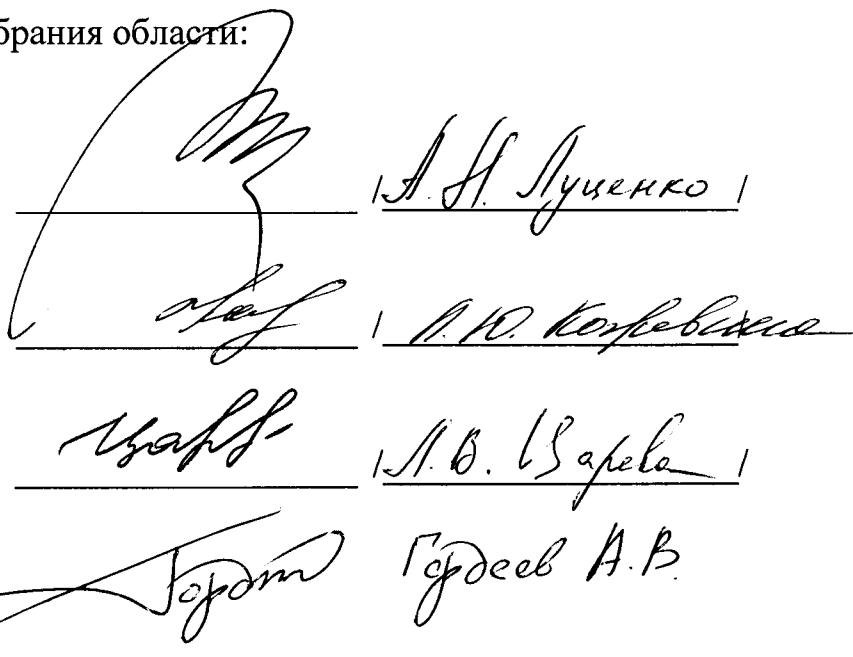 брания области:
/А. Н. Луценко /
/ Л. Ю. Кожевина
/Л. В. Царева /
Гордеев А.В.